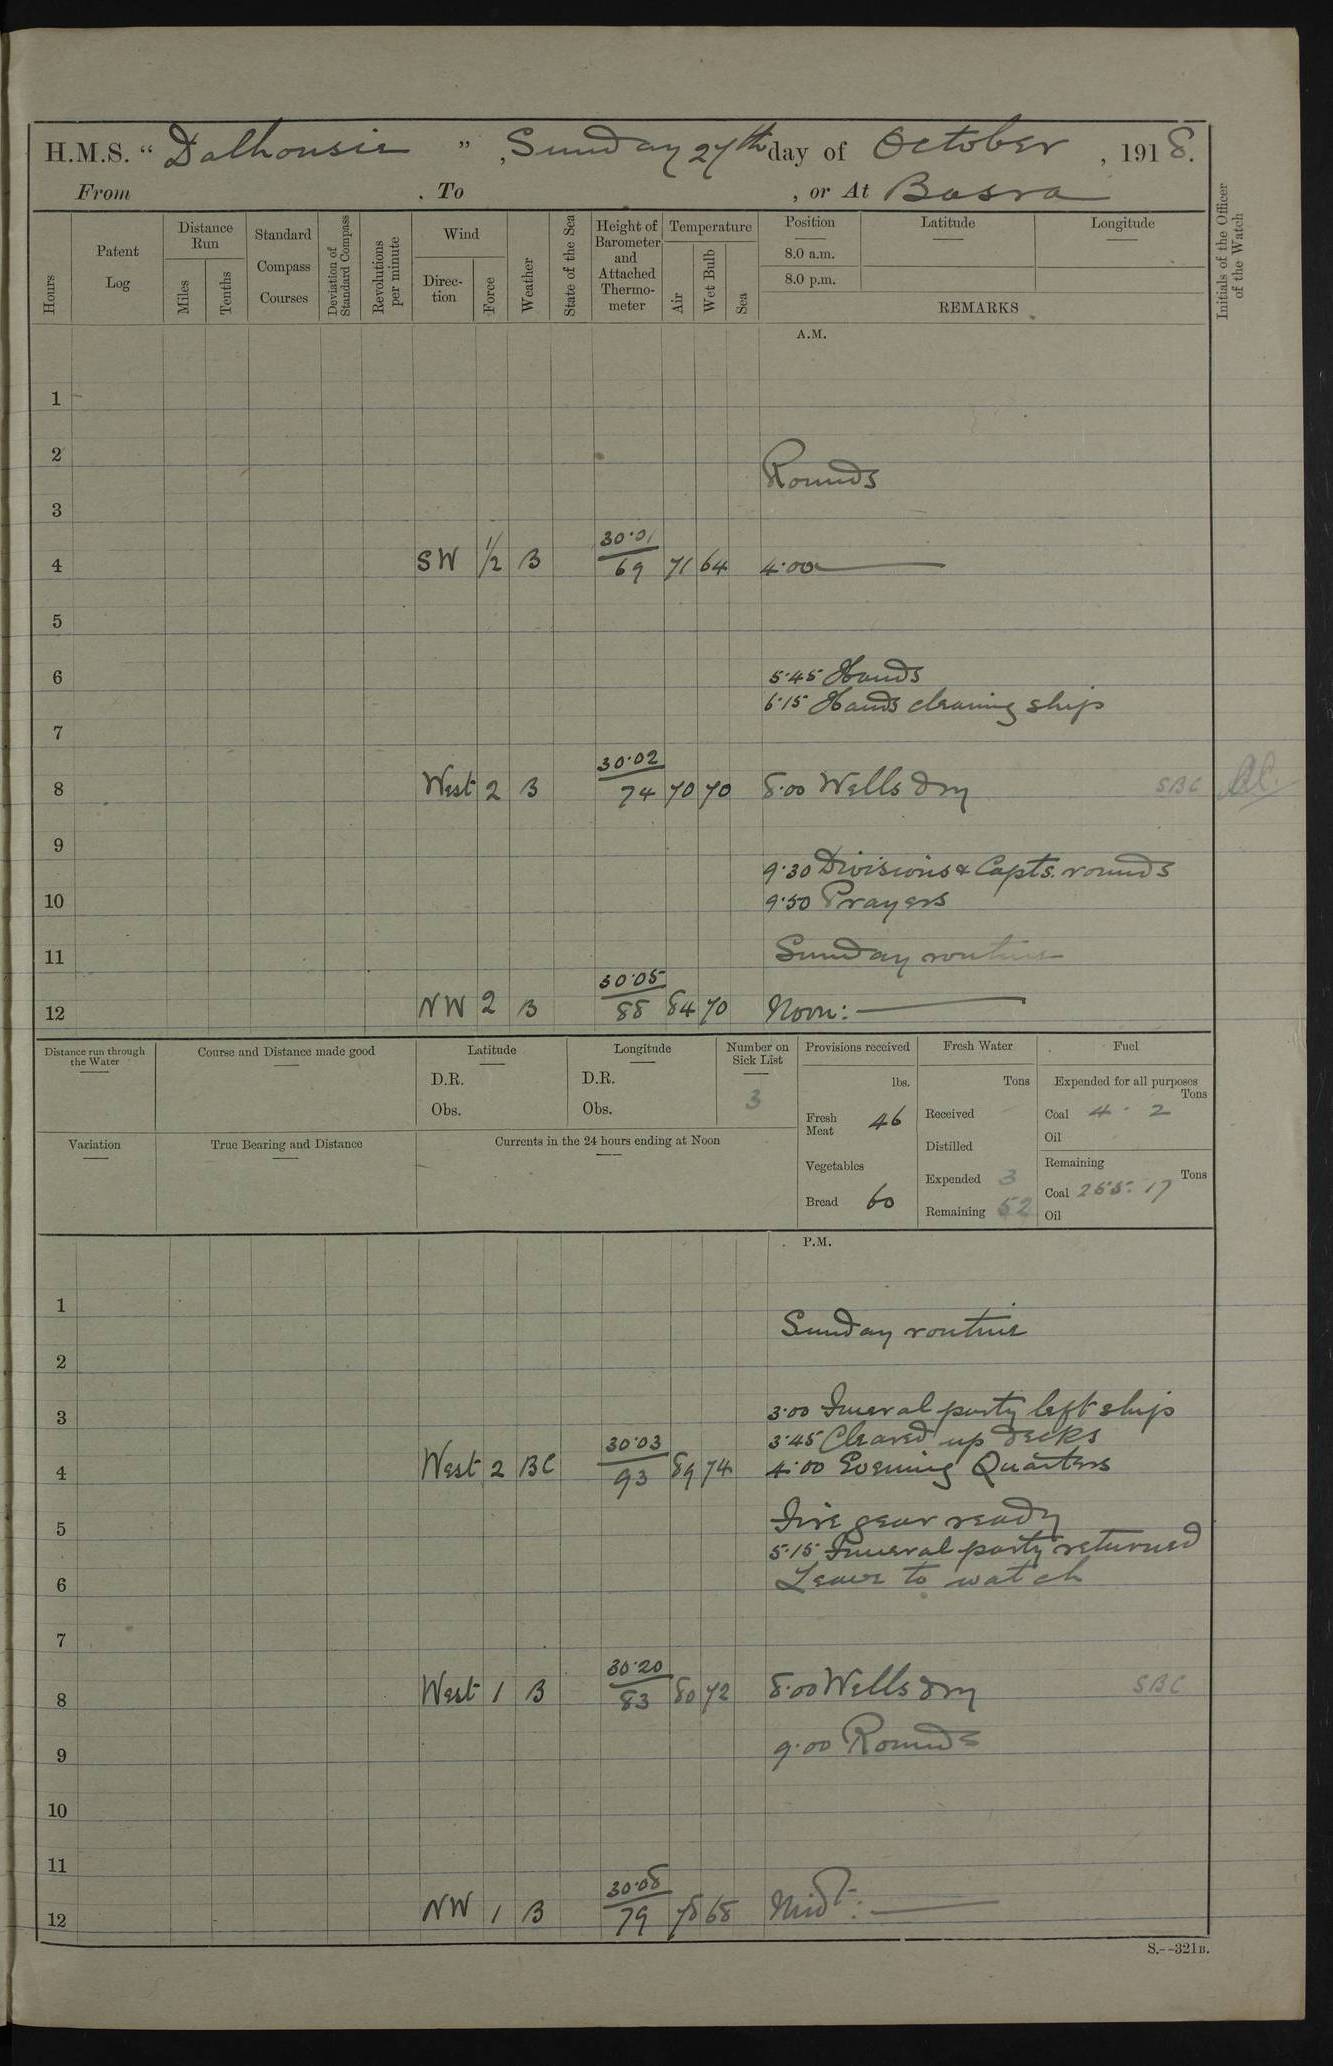 H.M.S. “ Dalhousie ” , Sunday 27th day of October , 1918.
From , To , or At Basra
Hours
Patent Log
Distance Run
Miles
Tenths
Standard Compass Courses
Deviation of Standard Compass
Revolutions per minute
Wind
Direc-tion
Force
Weather
State of the Sea
Height of Barometer and Attached Thermo-meter
Temperature
Air
Wet Bulb
Sea
Position
8.0 a.m.
8.0 p.m.
Latitude
Longitude
REMARKS
Initials of the Officer of the Watch
A.M.
1
2
Rounds
3
30.01
4 SW 1/2 B 69 71 64 4.00
5
6 5.45 Hands
6.15 Hands cleaning ship
7
30.02
8 West 2 B 74 70 70 8.00 Wells dry SBC
9
9.30 Divisions & Capts. rounds
10 9.50 Prayers
11 Sunday routine
30.05
12 NW 2 B 88 84 70 Noon:
Distance run through the Water
Course and Distance made good
Latitude
D.R.
Obs.
Longitude
D.R.
Obs.
Number on Sick List
3
Provisions received
lbs.
Fresh Meat 46
Vegetables
Bread 60
Fresh Water
Tons
Received
Distilled
Expended 3
Remaining 52
Fuel
Expended for all purposes
Tons
Coal 4 . 2
Oil
Remaining
Tons
Coal 255. 17
Oil
Variation
True Bearing and Distance
Currents in the 24 hours ending at Noon
P.M.
1
Sunday routine
2
3 3.00 Funeral party left ship
30.03 3.45 Cleared up decks
4 West 2 BC 93 89 74 4.00 Evening Quarters
5 Fire gear ready
5.15 Funeral party returned
6 Leave to watch
7
30.20
8 West 1 B 83 80 72 8.00 Wells dry SBC
9 9.00 Rounds
10
11
30.08
12 NW 1 B 79 78 68 Midt:
S.--321B.